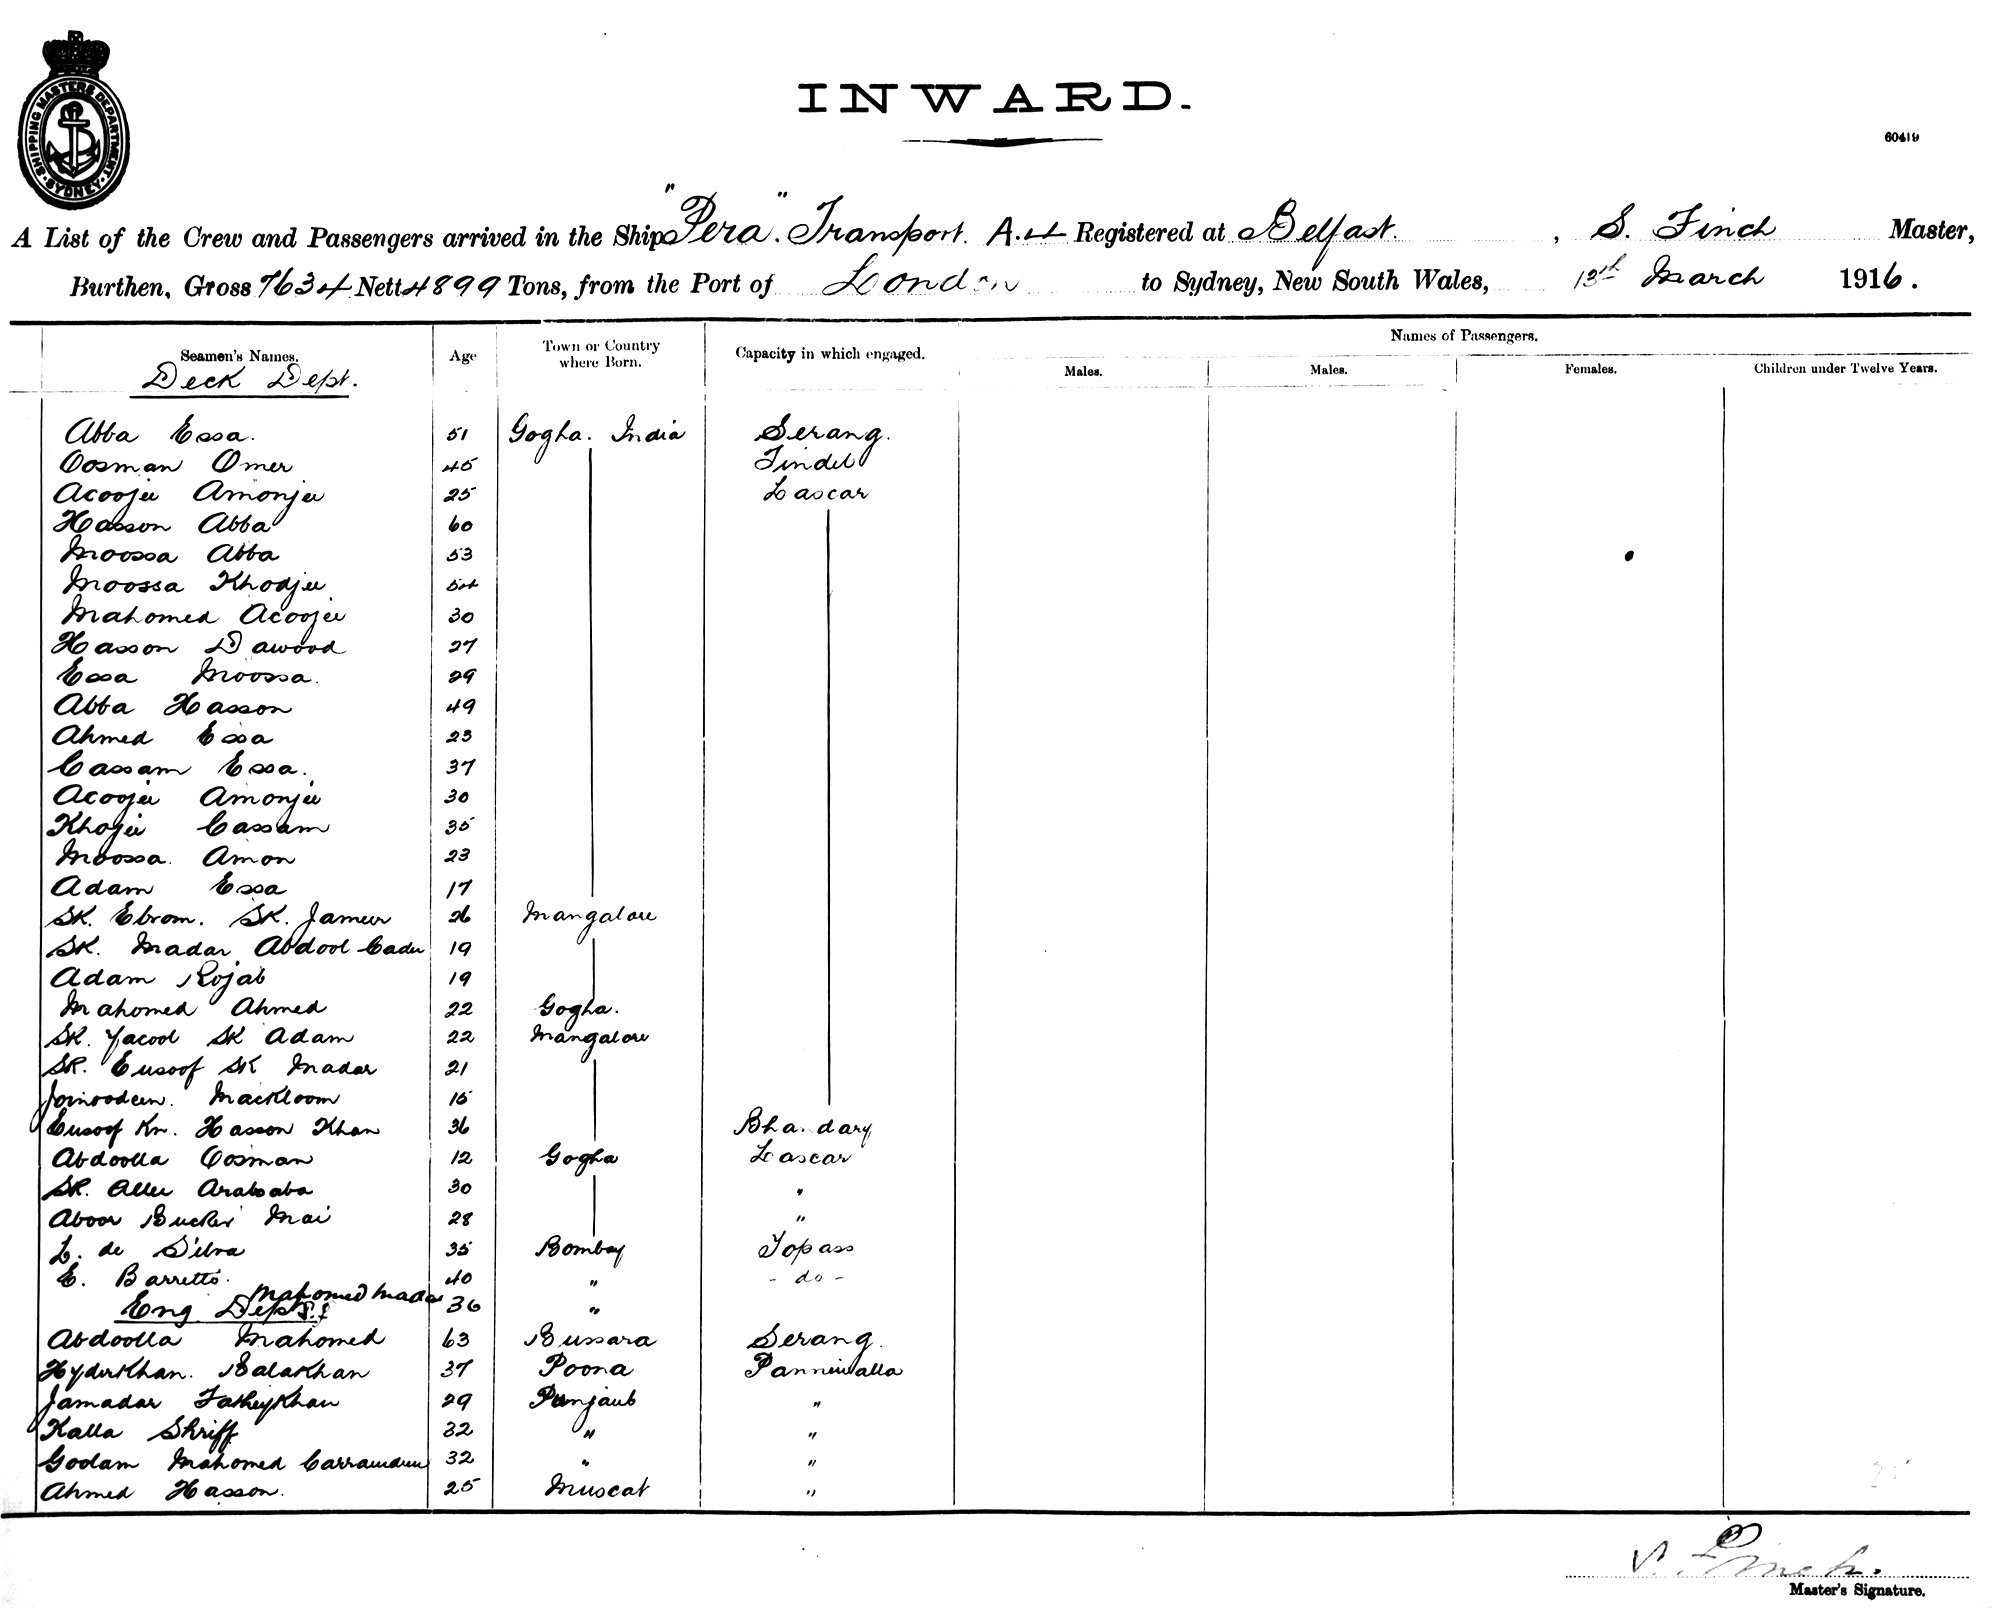 SHIPPING MASTERS DEPARTMENT · SYDNEY ·
INWARD.
60419
A List of the Crew and Passengers arrived in the Ship "Pera". Transport. A.4 Registered at Belfast. , S. Finch Master,
Burthen, Gross 7634 Nett 4899 Tons, from the Port of London to Sydney, New South Wales, 13th March 1916.
Seamen's Names. Age Town or Country where Born. Capacity in which engaged. Names of Passengers.
Males. Males. Females. Children under Twelve Years.
Deck Dept.
Abba Essa. 51 Gogha. India Serang.
Oosman Omer 45 Tindel
Acoojee Amonjee 25 Lascar
Hasson Abba 60
Moossa Abba 53
Moossa Khodjee 54
Mahomed Acoojee 30
Hasson Dawood 27
Essa Moossa. 29
Abba Hasson 49
Ahmed Essa 23
Cassam Essa. 37
Acoojee Amonjee 30
Khojee Cassam 35
Moossa. Amon 23
Adam Essa 17
SK. Ebrom. SK. Jameer 26 Mangalore
SK. Madar Abdool Cader 19
Adam Rojab 19
Mahomed Ahmed 22 Gogha.
SK. Yacool SK Adam 22 Mangalore
SK. Eusoof SK Madar 21
Joinoodeen. Mackloom 15
Eusoof Kn. Hasson Khan 36 Bhandary
Abdoolla Oosman 12 Gogha Lascar
SK. Allee Arabsaba 30 "
Aboor Bucker Mai 28 "
L. de Silva 35 Bombay Topass
E. Barretto. 40 " - do -
Eng Dept. Mahomed Madar 36 "
Abdoolla Mahomed 63 Bussara Serang.
Hyderkhan. Balakhan 37 Poona Panniwalla
Jamadar Fatheykhan 29 Punjaub "
Kalla Shriff 32 " "
Goolam Mahomed 32 " "
Ahmed Hasson. 25 Muscat "
S. Finch.
Master's Signature.